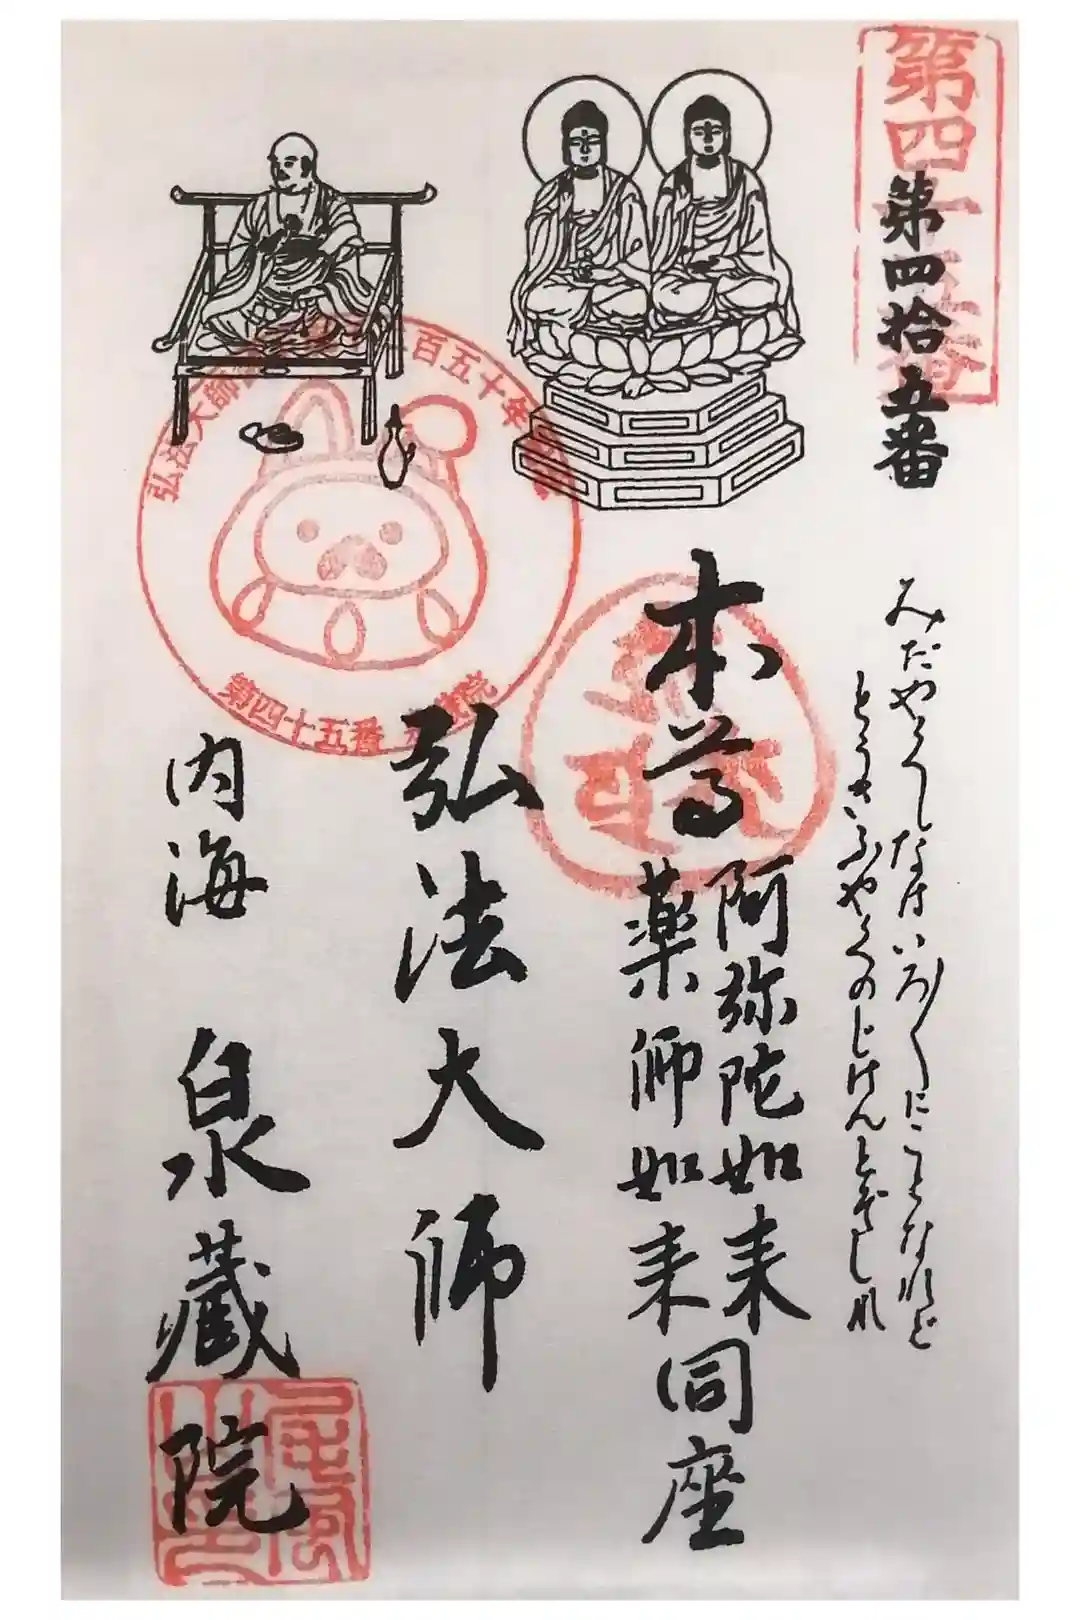 第四十五番
第四拾五番
みだやくしなはいろ〳〵にことなれど
とうさふやくのじけんとぞしれ
本尊
阿弥陀如来
薬師如来
同座
弘法大師
内海 泉蔵院
弘法大師 百五十年
第四十五番 院